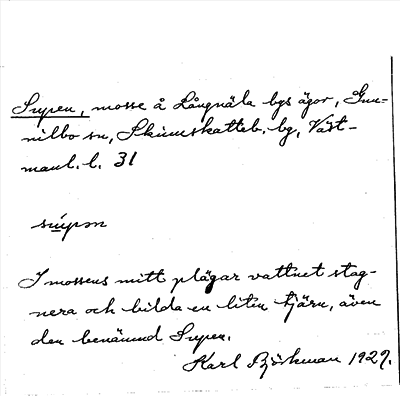 Supen, mosse å Långnäla bgs ägor, Gun-
nilbo sn, Skinnskatteb. bg, Väst-
manl. l. 31
sùpən
I mossens mitt plägar vattnet stag-
nera och bilda en liten tjärn, även
den benämnd Supen.
Karl Björkman 1929.